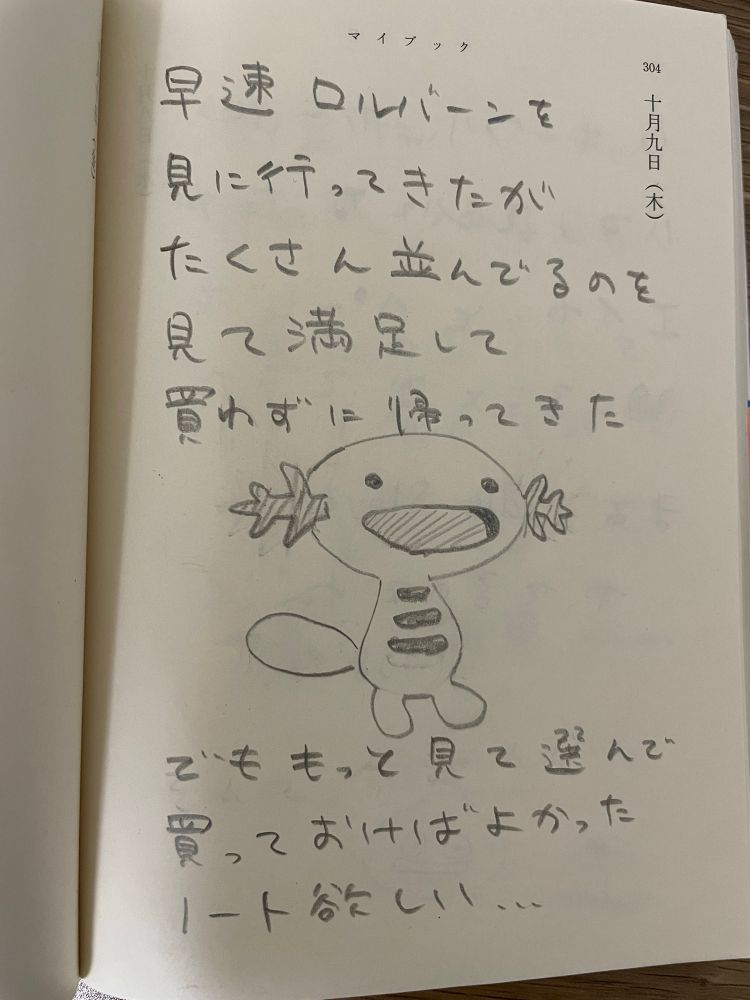 マイブック
304
十月九日(木)
早速 ロルバーンを
見に行ってきたが
たくさん並んでるのを
見て満足して
買わずに帰ってきた
でももっと見て選んで
買っておけばよかった
ノート欲しい…